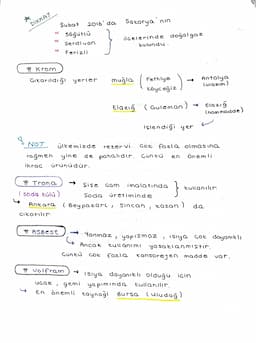 DİKKAT
Şubat 2018'da Sakarya'nın
Söğütlü
Serdivan
Ferizli
ilçelerinde doğalgaz bulundu.
Krom
Çıkarıldığı yerler
muğla (Fethiye Köyceğiz → Antalya
Elazığ (Guleman) → Elazığ
işlendiği yer
NOT ülkemizde rezervi çok fazla olmasına
rağmen yine de pahalıdır. Çünkü en önemli
ihraç ürünüdür.
Trona → Şişe cam imalatında
(soda külü) Soda üretiminde
kullanılır
Ankara (Beypazarı, Sincan, Kazan) da
çıkarılır
Asbest → Yanmaz, yapışmaz, ısıya çok dayanıklı
Ancak kullanımı yasaklanmıştır.
Çünkü çok fazla kanserojen madde var.
Volfram → ısıya dayanıklı olduğu için
uçak, gemi yapımında kullanılır.
→ En önemli kaynağı Bursa (Uludağ)